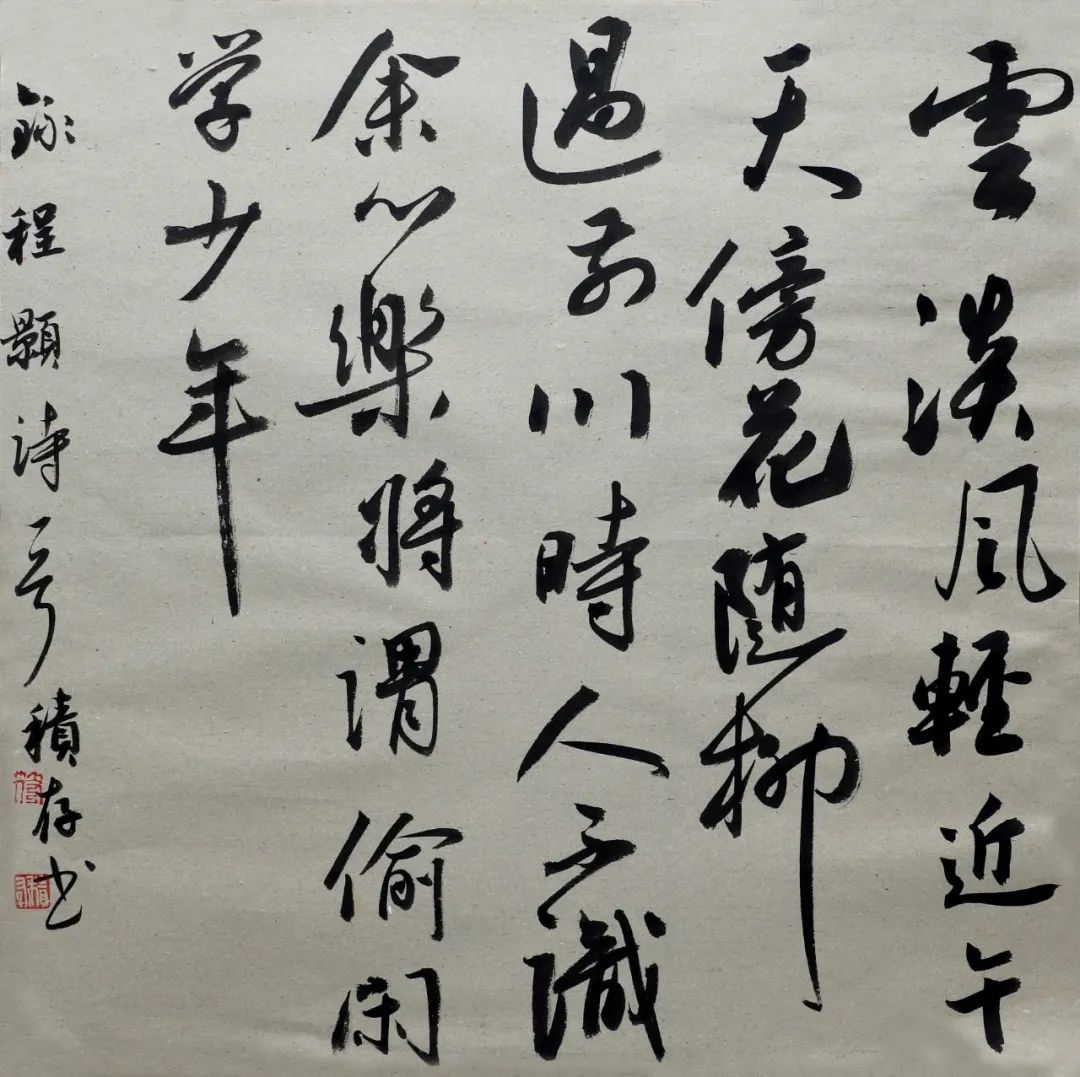 雲淡风輕近午
天傍花随柳
過前川時人不識
余心樂將謂偷闲
学少年
錄程顥诗一首積存书